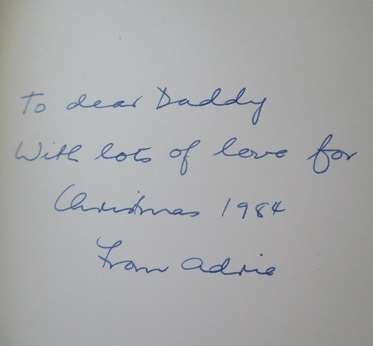 To dear Daddy
With lots of love for
Christmas 1984
From Adrie